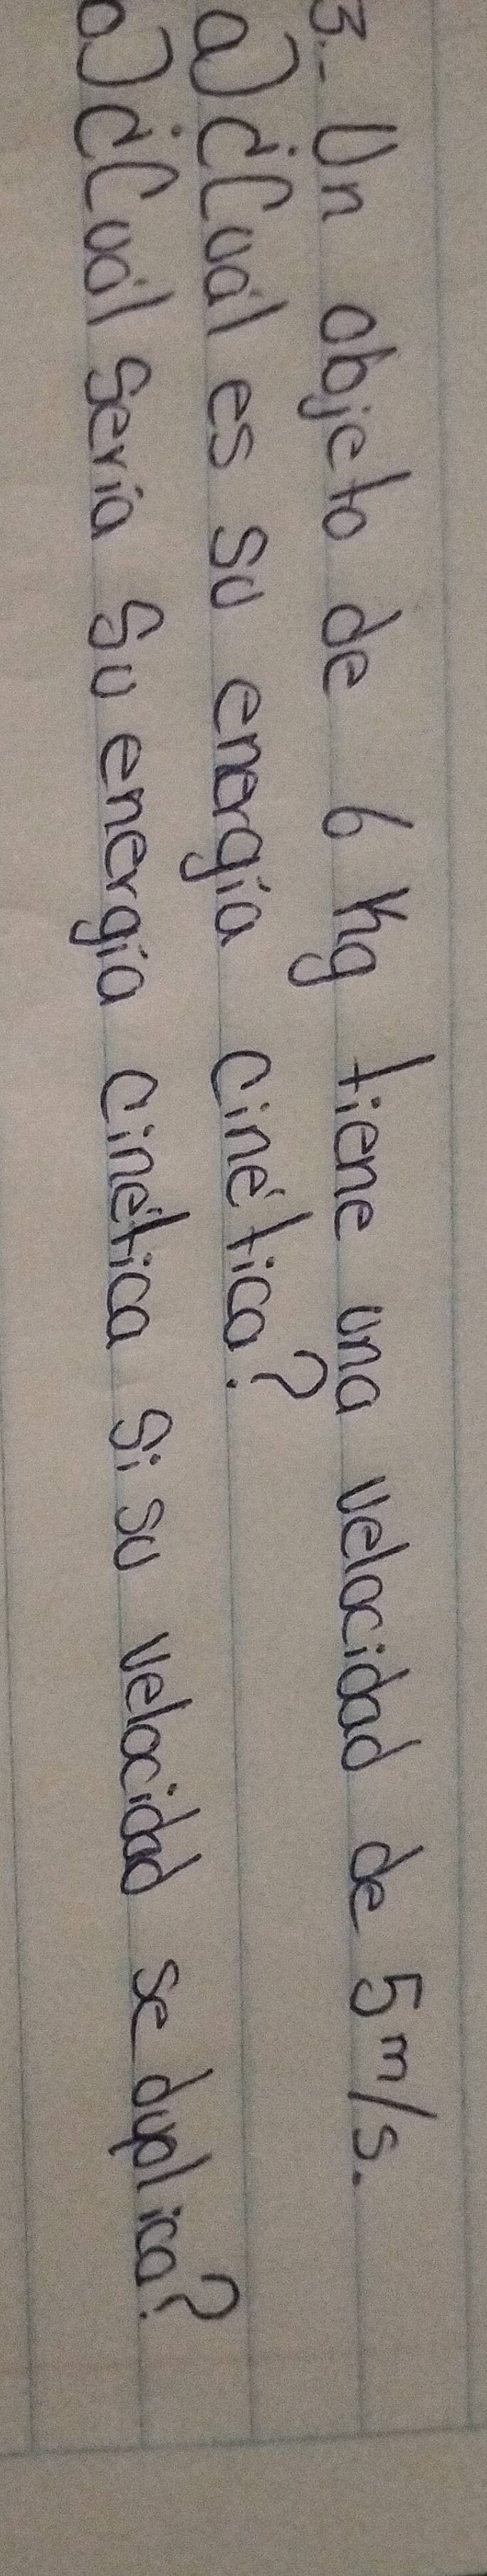 3.- Un objeto de 6 kg tiene una velocidad de 5 m/s.
a) ¿Cuál es su energía cinética?
a) ¿Cuál sería su energía cinética si su velocidad se duplica?